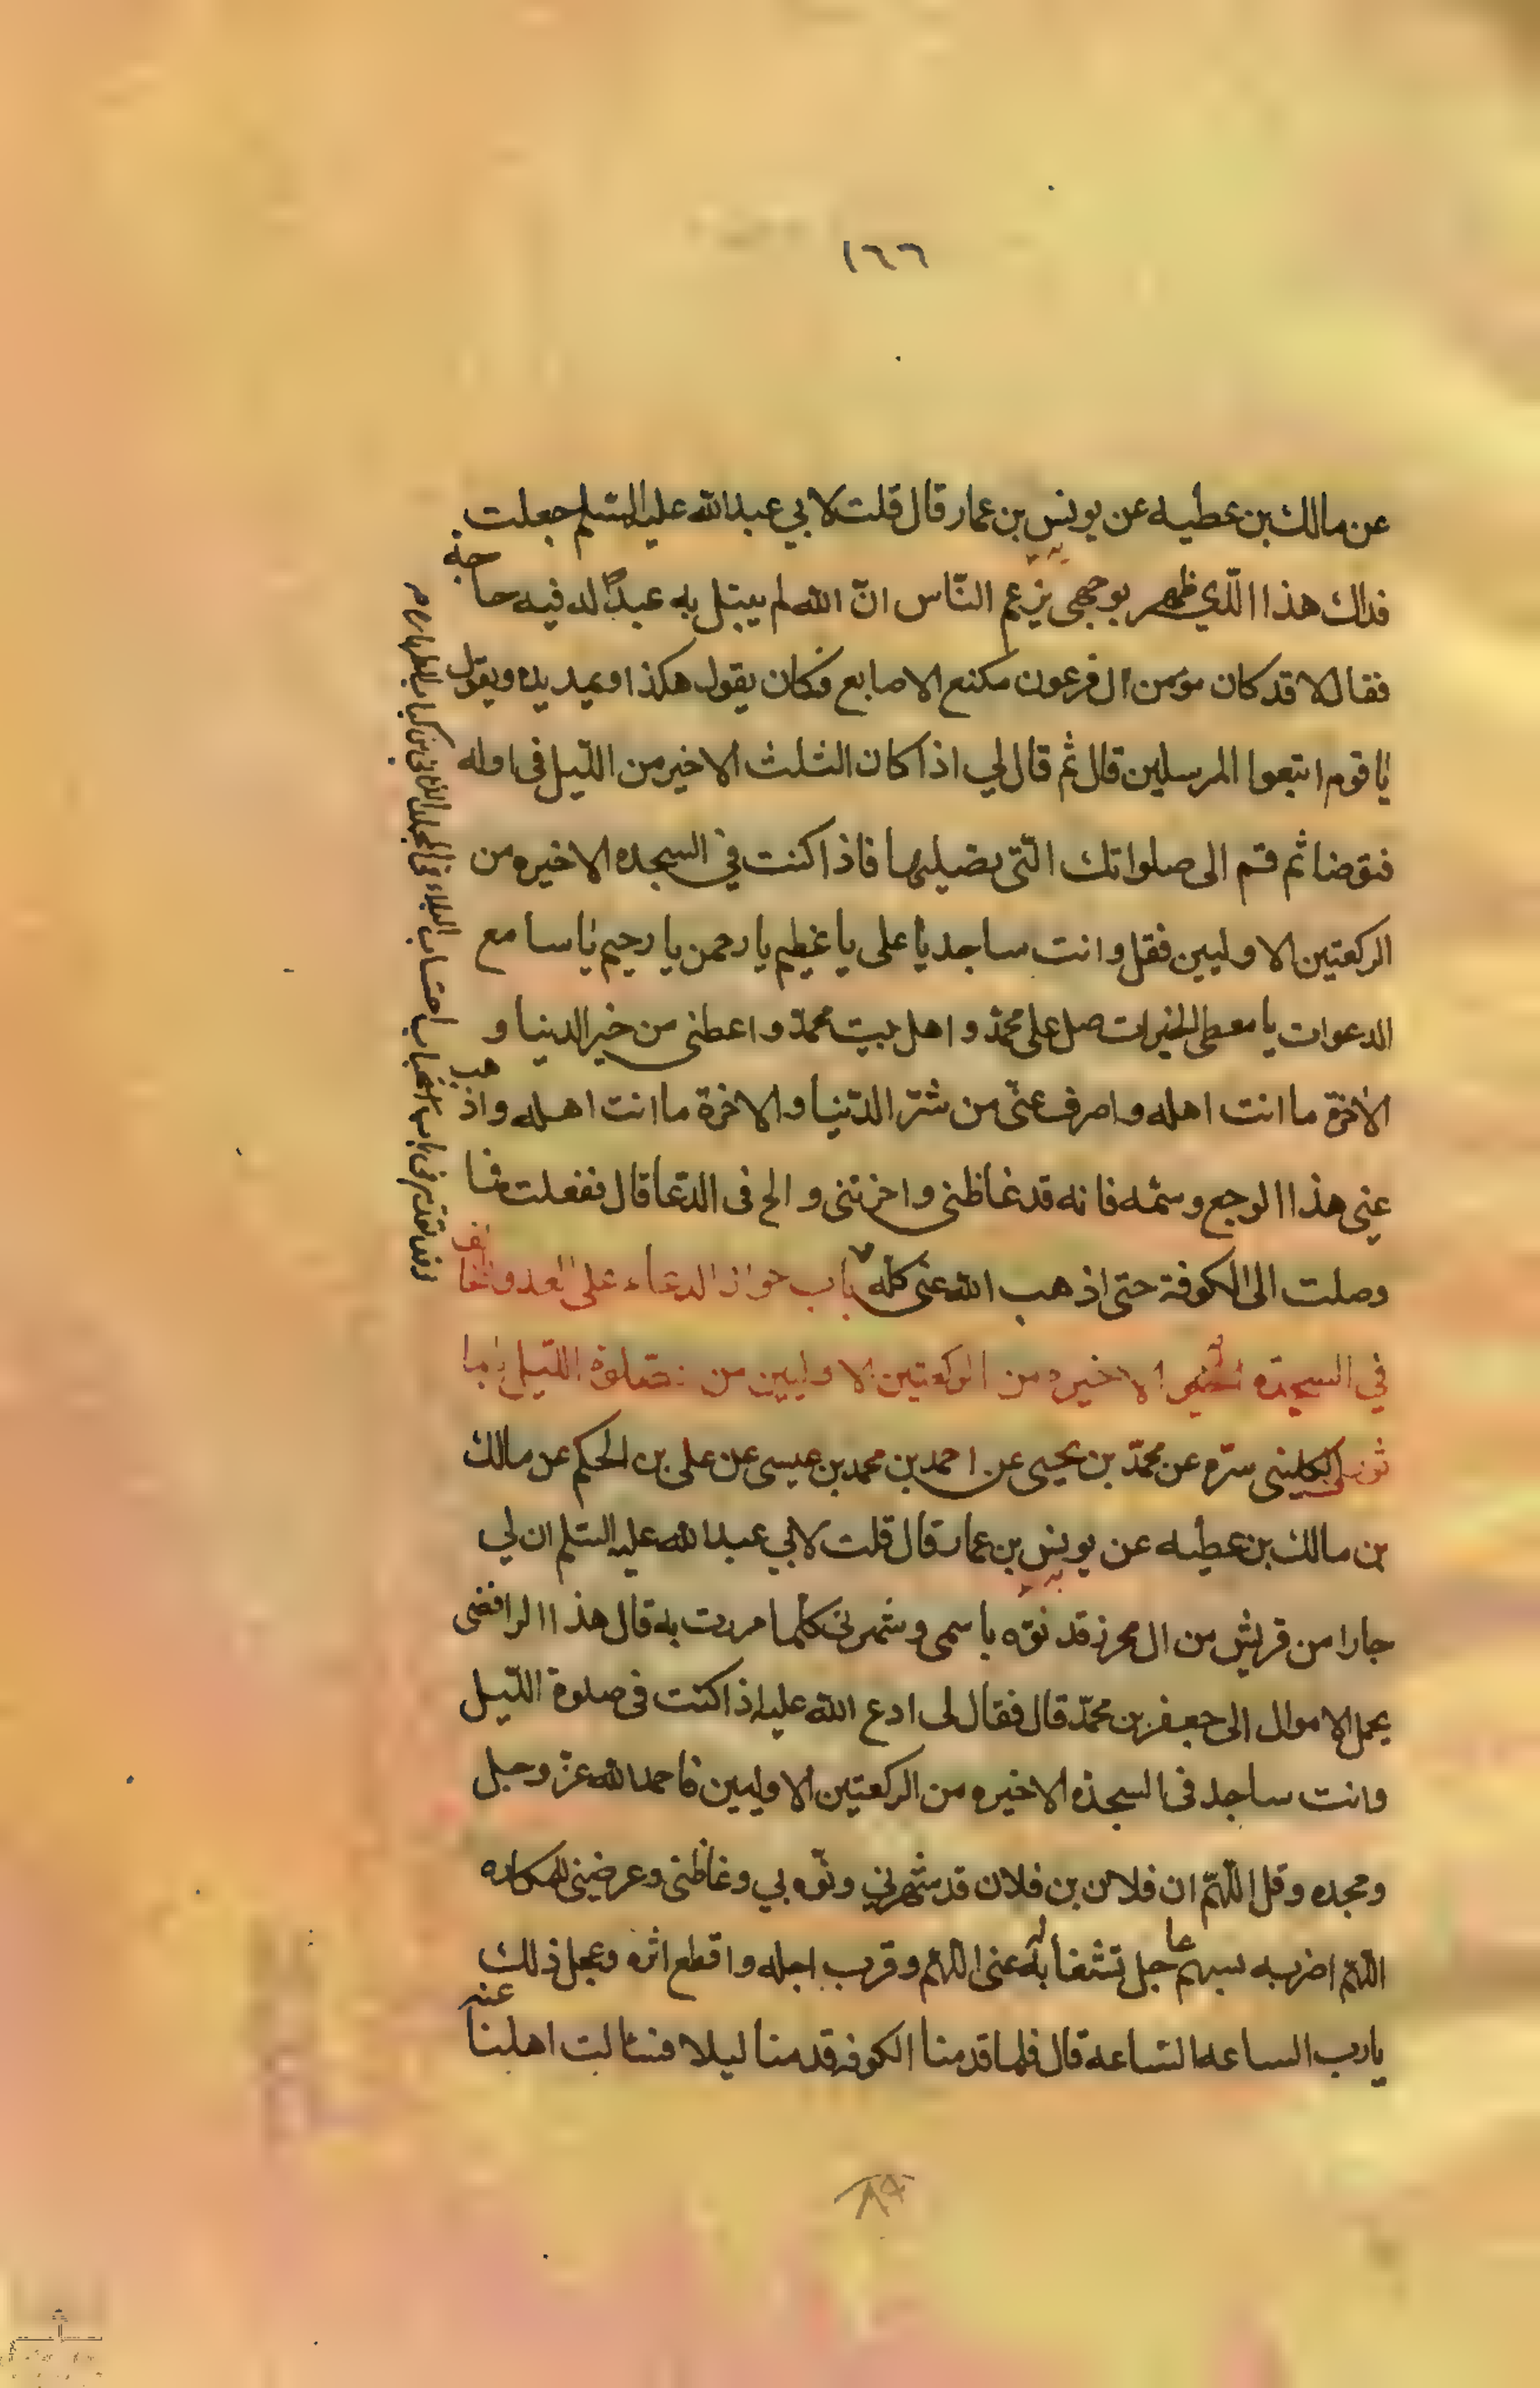 ١٦٦
عن مالك بن عطيه عن يونس بن عمار قال قلت لابي عبدالله عليه السلم جعلت
فداك هذا الذي ظهر بوجهي يزعم النّاس انّ الله لم يبتل به عبدًا له فيه حاجة
فقال لا قد كان مؤمن ال فرعون مكنع الاصابع فكان يقول هكذا ويمد يده ويقول
يا قوم اتبعوا المرسلين قال ثم قال لي اذا كان الثلث الاخير من اللّيل في اوله
فتوضا ثم قم الى صلواتك الّتي تصليها فاذا كنت في السجده الاخيره من
الركعتين الاوليين فقل وانت ساجد يا علي يا عظيم يا رحمن يا رحيم يا سامع
الدعوات يا معطي الخيرات صل على محمد واهل بيت محمد واعطني من خير الدنيا و
الاخرة ما انت اهله واصرف عنّي من شرّ الدّنيا والاخرة ما انت اهله واذهب
عني هذا الوجع وسمّه فانه قد غاظني واحزنني والح في الدّعا قال ففعلت فما
وصلت الى الكوفة حتى اذهب الله عني كلّه باب جواز الدعاء على العدو
في السجدة الاخيره من الركعتين الاوليين من صلوة اللّيل
الكليني سرّه عن محمّد بن يحيى عن احمد بن محمد بن عيسى عن علي بن الحكم عن مالك
بن مالك بن عطيه عن يونس بن عمار قال قلت لابي عبدالله عليه السّلم ان لي
جارا من قريش من ال محرز قد نوّه باسمي وشهرني كلّما مررت به قال هذا الرافضي
يحمل الاموال الى جعفر بن محمّد قال فقال لي ادع الله عليه اذا كنت في صلوة اللّيل
وانت ساجد في السجده الاخيره من الركعتين الاوليين فاحمد الله عزّ وجل
ومجده وقل اللّهمّ ان فلان بن فلان قد شهرني ونوّه بي وغاظني وعرضني للمكاره
اللّهمّ اضربه بسهم عاجل تشغله به عني اللّهمّ وقرب اجله واقطع اثره وعجل ذلك
يا رب الساعه الساعه قال فلما قدمنا الكوفه قدمنا ليلا فسئالت اهلنا عنه